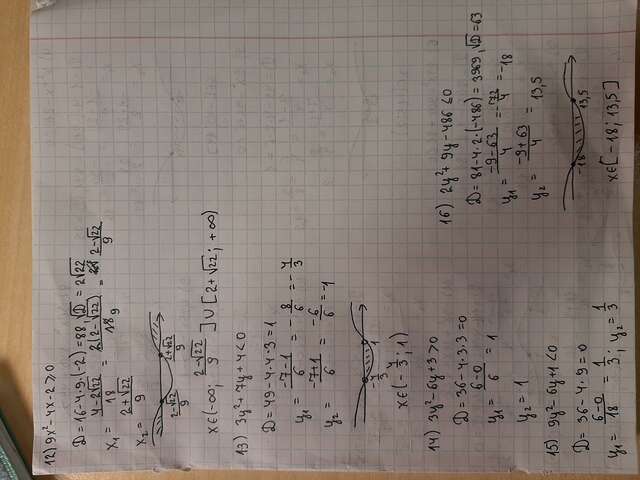 12) 9x² - 4x - 2 ≥ 0
D = 16 - 4·9·(-2) = 88, √D = 2√22
x₁ = (4 - 2√22)/18 = 2(2 - √22)/18 9 = (2 - √22)/9
x₂ = (2 + √22)/9
(2-√22)/9 (2+√22)/9
x ∈ (-∞; (2 - √22)/9 ] ∪ [2 + √22; +∞)
13) 3y² + 7y + 4 < 0
D = 49 - 4·4·3 = 1
y₁ = (-7 - 1)/6 = -8/6 = -4/3
y₂ = (-7 + 1)/6 = -6/6 = -1
-4/3 -1
x ∈ (-4/3; 1)
14) 3y² - 6y + 3 > 0
D = 36 - 4·3·3 = 0
y₁ = (6 - 0)/6 = 1
y₂ = 1
15) 9y² - 6y + 1 < 0
D = 36 - 4·9 = 0
y₁ = (6 - 0)/18 = 1/3; y₂ = 1/3
16) 2y² + 9y - 486 ≤ 0
D = 81 - 4·2·(-486) = 3969, √D = 63
y₁ = (-9 - 63)/4 = -72/4 = -18
y₂ = (-9 + 63)/4 = 13,5
-18 13,5
x ∈ [-18; 13,5]